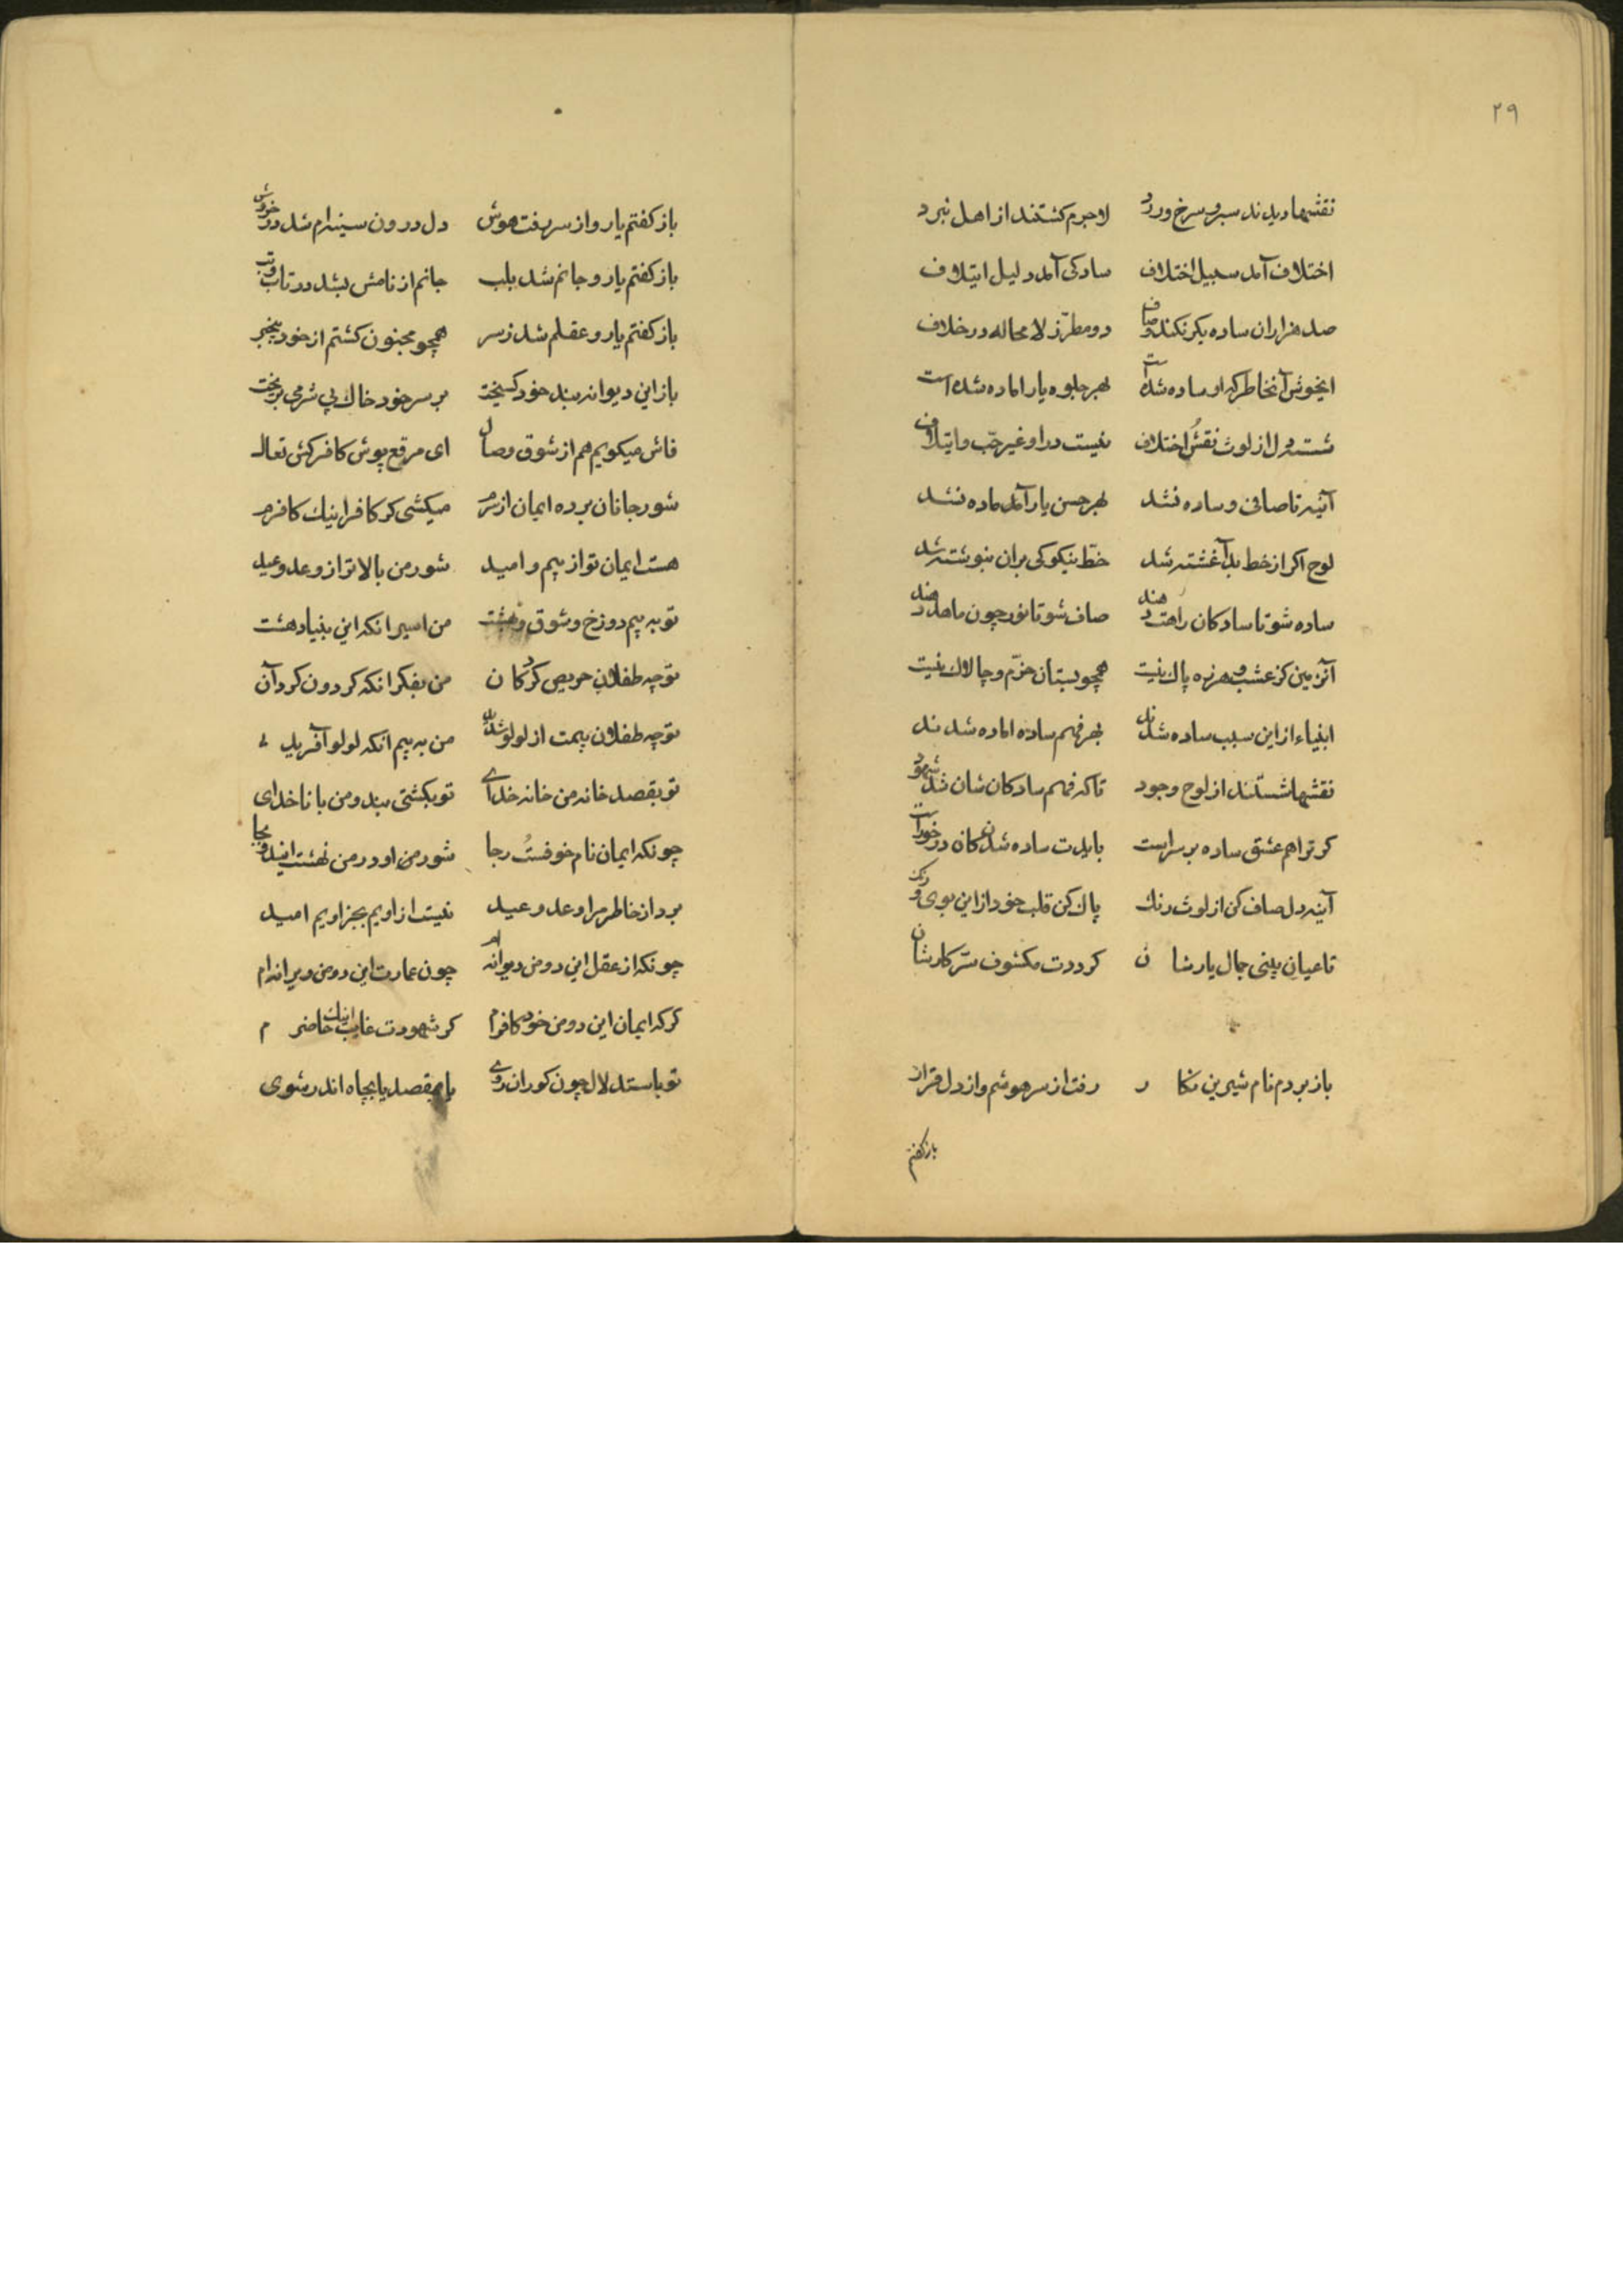 ۲۹
نقشها دیدند سبز و سرخ و زرد لاجرم کشتند از اهل نبرد
اختلاف آمد سبیل اختلاف سادکی آمد دلیل ایتلاف
صد هزاران ساده یکرنکند و صاف دو مطرّز لا محاله در خلاف
ایخوش آنخاطر که او ساده شده است بهر جلوه یار اماده شده است
شسته دل از لوث نقش اختلاف نیست در او غیر حبّ و ایتلاف
آئینه تا صافی و ساده نشد بهر حسن یار آمده ماده نشد
لوح اکر از خط بد آغشته شد خطّ نیکو کی بران بنوشته شد
ساده شو تا سادکان راهت دهند صاف شو تا نور چون ماهت دهند
آنزمین کز عشب و هرزه پاک نیست همچو بستان خرّم و چالاک نیست
انبیاء از این سبب ساده شدند بهر فهم ساده اماده شدند
نقشها شستند از لوح وجود تا که فهم سادکان شان شد شهود
کر ترا هم عشق ساده بر سر است بایدت ساده شدن کان در خور است
آینه دل صاف کن از لوث رنک پاک کن قلب خود از این بوی و رنک
تا عیان بینی جمال یارشان کرددت مکشوف سّر کارشان
باز بردم نام شیرین نکار رفت از سر هوشم و از دل قرار
باز کفتم
باز کفتم یار و از سر رفت هوش دل درون سینه‌ام شد در خروش
باز کفتم یار و جانم شد بلب جانم از نامش بشد در تاب و تب
باز کفتم یار و عقلم شد ز سر همچو مجنون کشتم از خود بیخبر
باز این دیوانه بند خود کسیخت بر سر خود خاک بی شرمی بریخت
فاش میکویم هم از شوق وصال ای مرقع پوش کافر کش تعال
شور جانان برده ایمان از سرم میکشی کر کافر اینک کافرم
هست ایمان تو از بیم و امید شور من بالاتر از وعد و عید
تو به بیم دوزخ و شوق بهشت من اسیر انکه این بنیاد هشت
تو چه طفلان حریص کردکان من بفکر انکه کردون کرد آن
تو چه طفلان بیمت از لولو شدن من به بیم آنکه لولو آفرید
تو بقصد خانه من خانه خدای تو بکشتی بند و من با ناخدای
چونکه ایمان نام خوفست رجا شور من او در من نهشت
برد از خاطر مرا وعد و عید نیست از او بیم بجز او یم امید
چونکه از عقل این دو من دیوانه‌ام چون عمارت این دو من ویرانه‌ام
کر که ایمان این دو من خود کافرم کر شهودت غایب اینک حاضرم
تو باستدلال چون کوران روی یا بمقصد یا بچاه اندر شوی